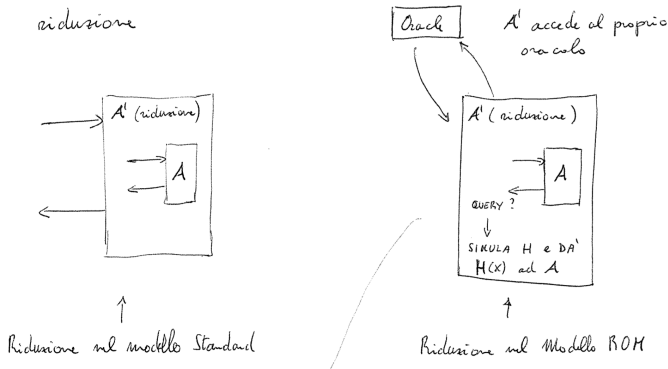 riduzione
A' (riduzione)
A
Riduzione nel modello Standard
Oracle
A' accede al proprio
oracolo
A' (riduzione)
A
QUERY ?
SIMULA H e DA'
H(x) ad A
Riduzione nel Modello ROM